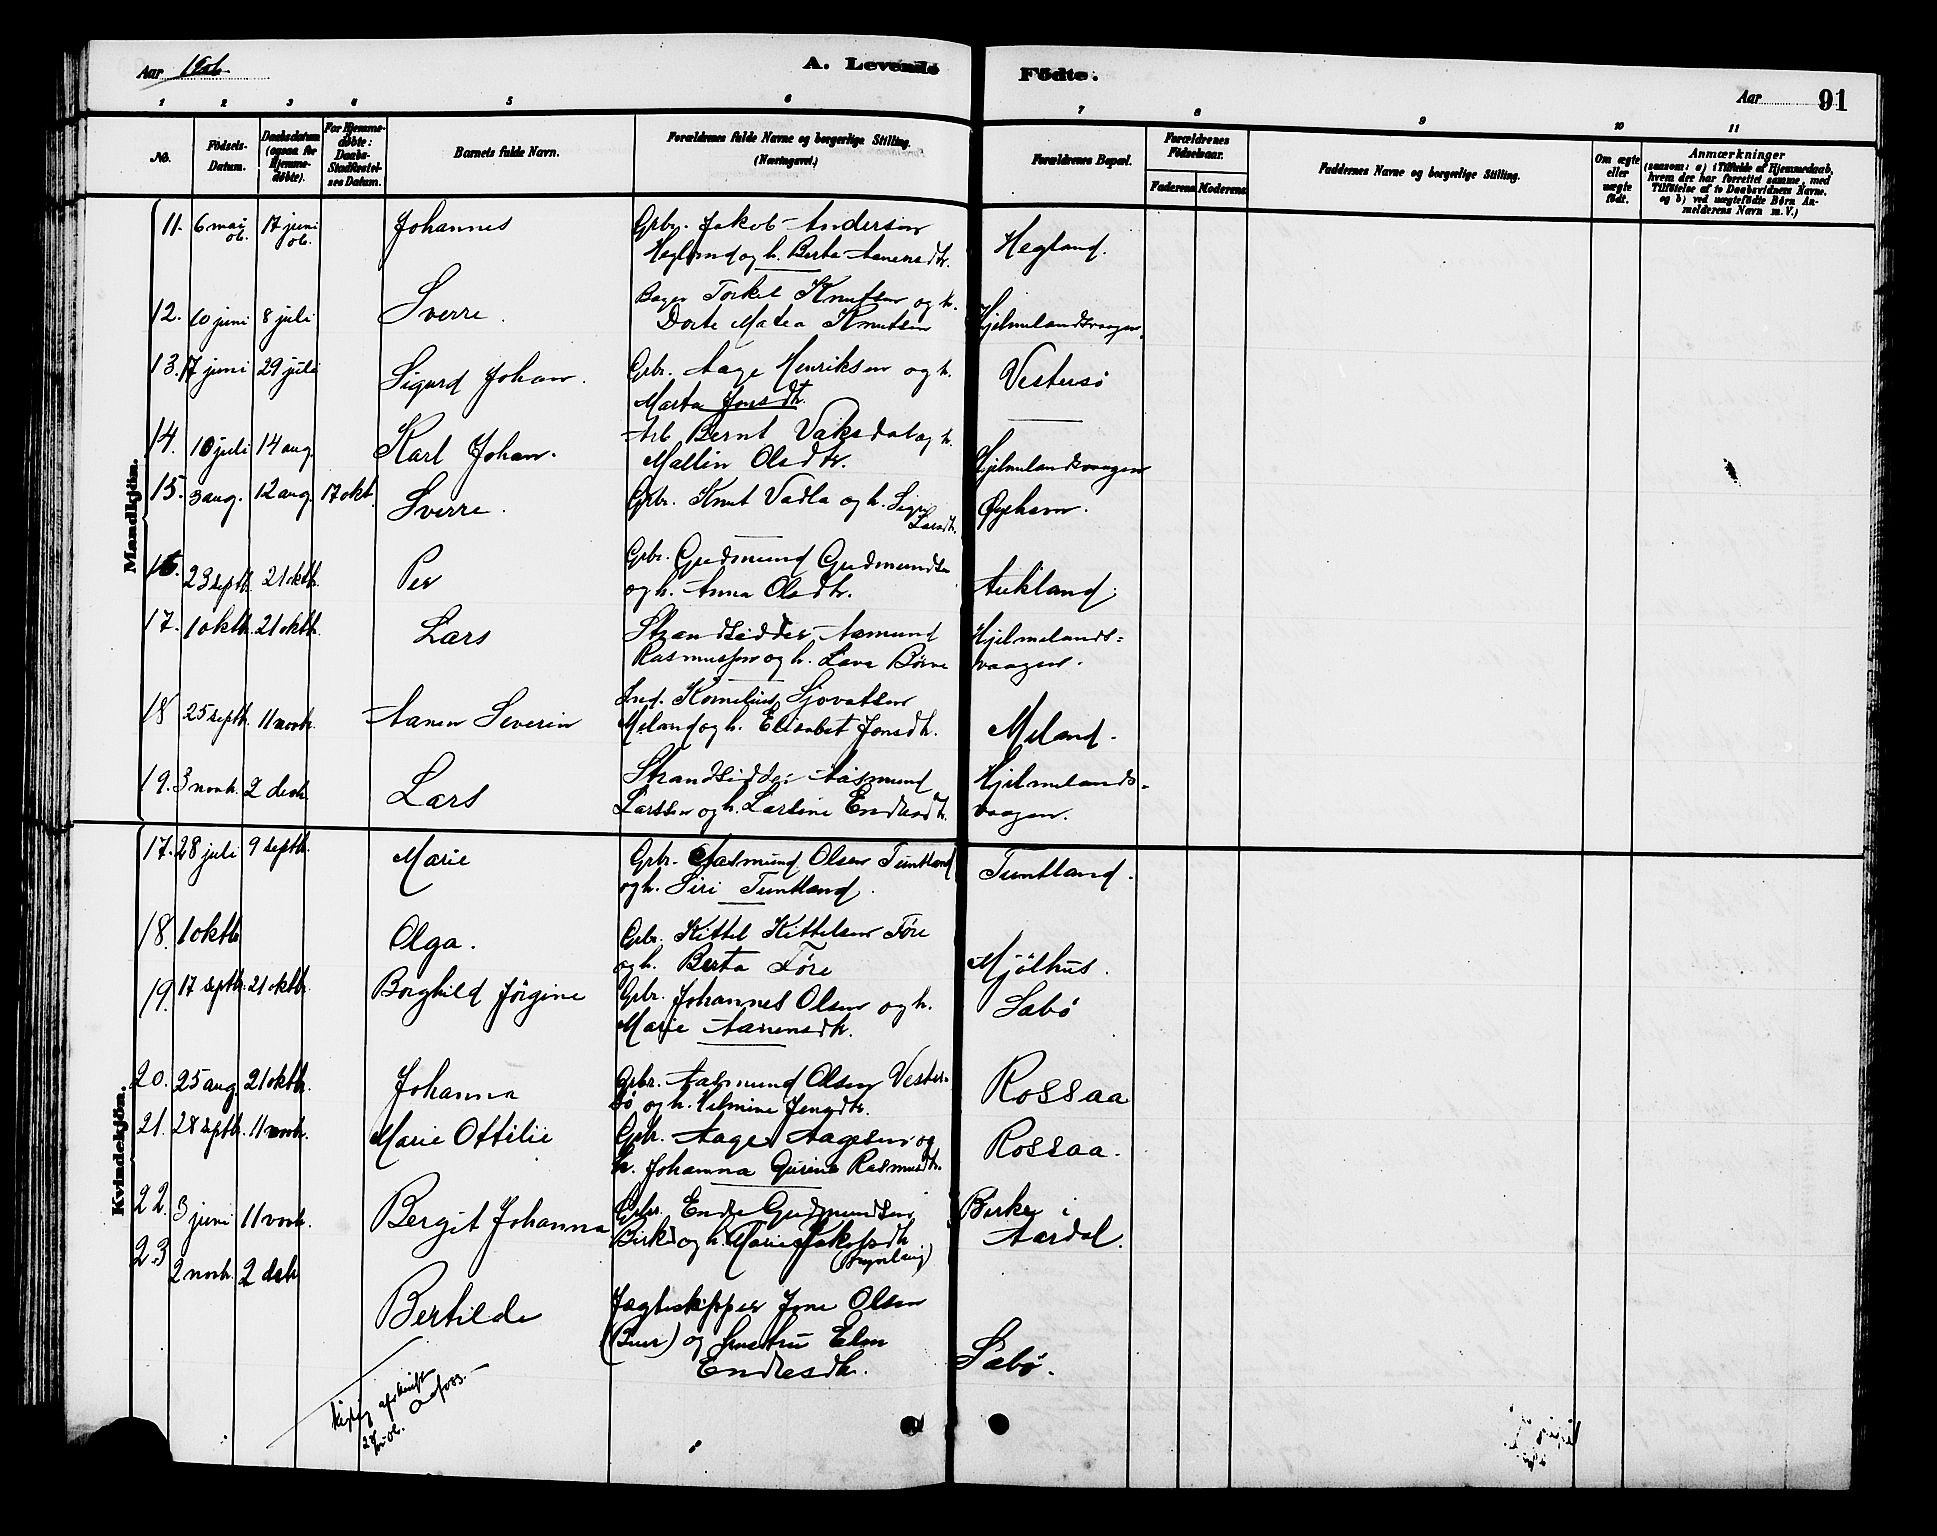 Aar 1906. A. Levende Födte. Aar 91
1 2 3 4 5 6 7 8 9 10 11
No. Födsels-Datum. Daabsdatum (ogsaa for Hjemme-døbte). For Hjemme-døbte: Daabs-Stadfæstel-ses Datum. Barnets fulde Navn. Forældrenes fulde Navne og borgerlige Stilling. (Næringsvei.) Forældrenes Bopæl. Forældrenes Födselsaar. Faderens Moderens Faddernes Navne og borgerlige Stilling. Om ægte eller uægte født. Anmærkninger (saasom: a) i Tilfælde af Hjemmedaab, hvem der har forrettet samme, med Tilföielse af to Daabsvidners Navne, og b) ved uægtefödte Börn An-melderens Navn m.V.)
Mandkjön.
11. 6 mai 06. 17 juni 06. Johannes Gbr. Jakob Andersen
Hegland og h. Berta Aanensdtr. Hegland.
12. 10 juni 8 juli Sverre. Bager Torkel Knutsen og h.
Dorte Matea Knutsen Hjelmelandsvaagen.
13. 17 juni 29 juli Sigurd Johan. Gbr. Aage Henriksen og h.
Marta Jonsdtr. Vestersö
14. 10 juli 14 aug. Karl Johan. Arb Bernt Vaksdal og h.
Mallin Olsdtr. Hjelmelandsvaagen
15. 3 aug. 12 aug. 17 okt. Sverre. Gbr. Knut Vadla og h. Siger
Larsdtr. Øyehavn.
16. 23 septb. 21 oktb. Per Gbr. Gudmund Gudmundsen
og h. Anna Olsdtr. Aukland.
17. 1 oktb. 21 oktb. Lars Strandsidder Aamund
Rasmussen og h. Lava Børne Hjelmelands=
vaagen.
18 25 septb. 11 novb. Aanen Severin Ind. Kornelius Sjovatsen
Meland og h. Elisabet Jonsdtr. Meland.
19. 3 novb. 2 decb. Lars Strandsidder Aasmund
Larssen og h. Larsine Endresdtr. Hjelmelands-
vaagen.
Kvindekjön.
17. 28 juli 9 septb. Marie Gbr. Aasmund Olsen Tuntland
og h. Siri Tuntland. Tuntland.
18. 1 oktb Olga. Gbr. Kittel Kittelsen Føre
og h. Berta Føre Mjølhus.
19. 17 septb. 21 oktb. Borghild Jørgine Gbr. Johannes Olsen og h.
Marie Aanensdtr. Sabö
20. 25 aug 21 oktb. Johanna Gbr. Aasmund Olsen Vester-
sö og h. Helmine Jensdtr. Rossaa
21. 28 septb. 11 novb. Marie Ottilie Gbr. Aage Aagesen og
h. Johanna Gurine Rasmusdtr. Rossaa.
22. 3 juni 11 novb. Bergit Johanna Gbr. Endre Gudmundsen
Birke og h. Marie Jakobsdtr. Birke i
Aardal.
23 2 novb. 2 decb Bertilde Jagteskipper Jone Olsen
(Buer) og hustru Elen
Endresdtr. Sabö.
Rigtig afskrift